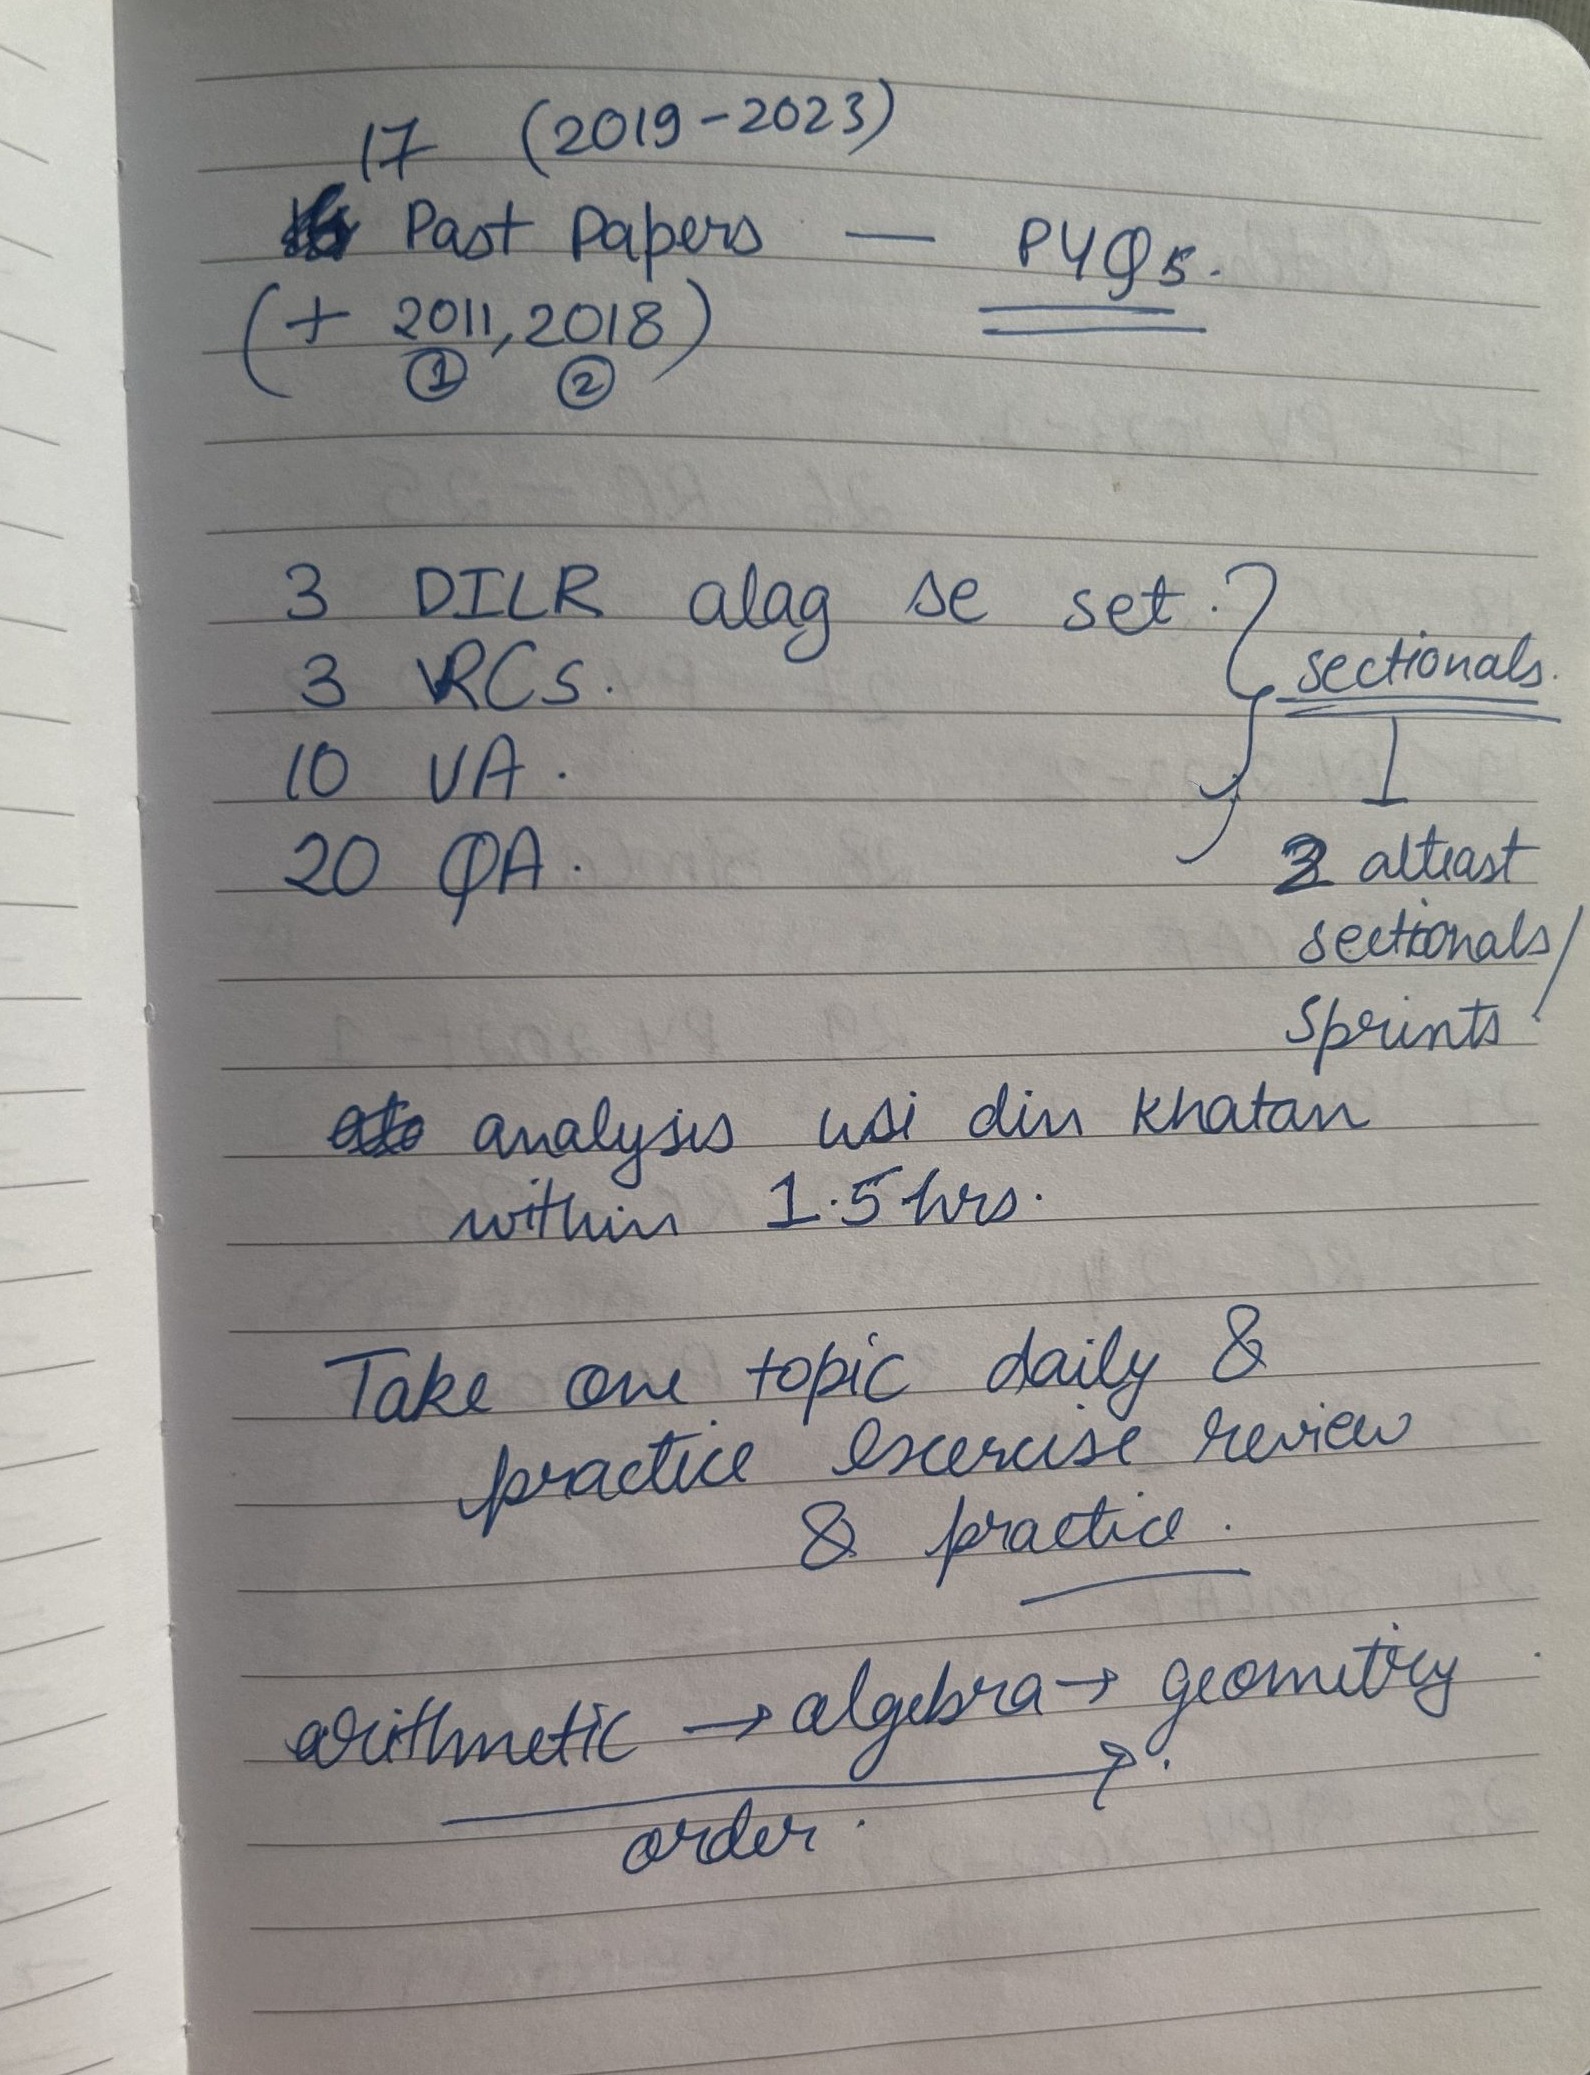 17 (2019-2023)
Past Papers — PYQs.
(+ 2011, 2018)
① ②
3 DILR alag se set.
3 RCs.
10 VA.
20 QA.
sectionals.
2 atleast
sectionals/
sprints
analysis usi din khatam
within 1.5 hrs.
Take one topic daily &
practice excercise review
& practice.
arithmetic → algebra → geometry.
order.